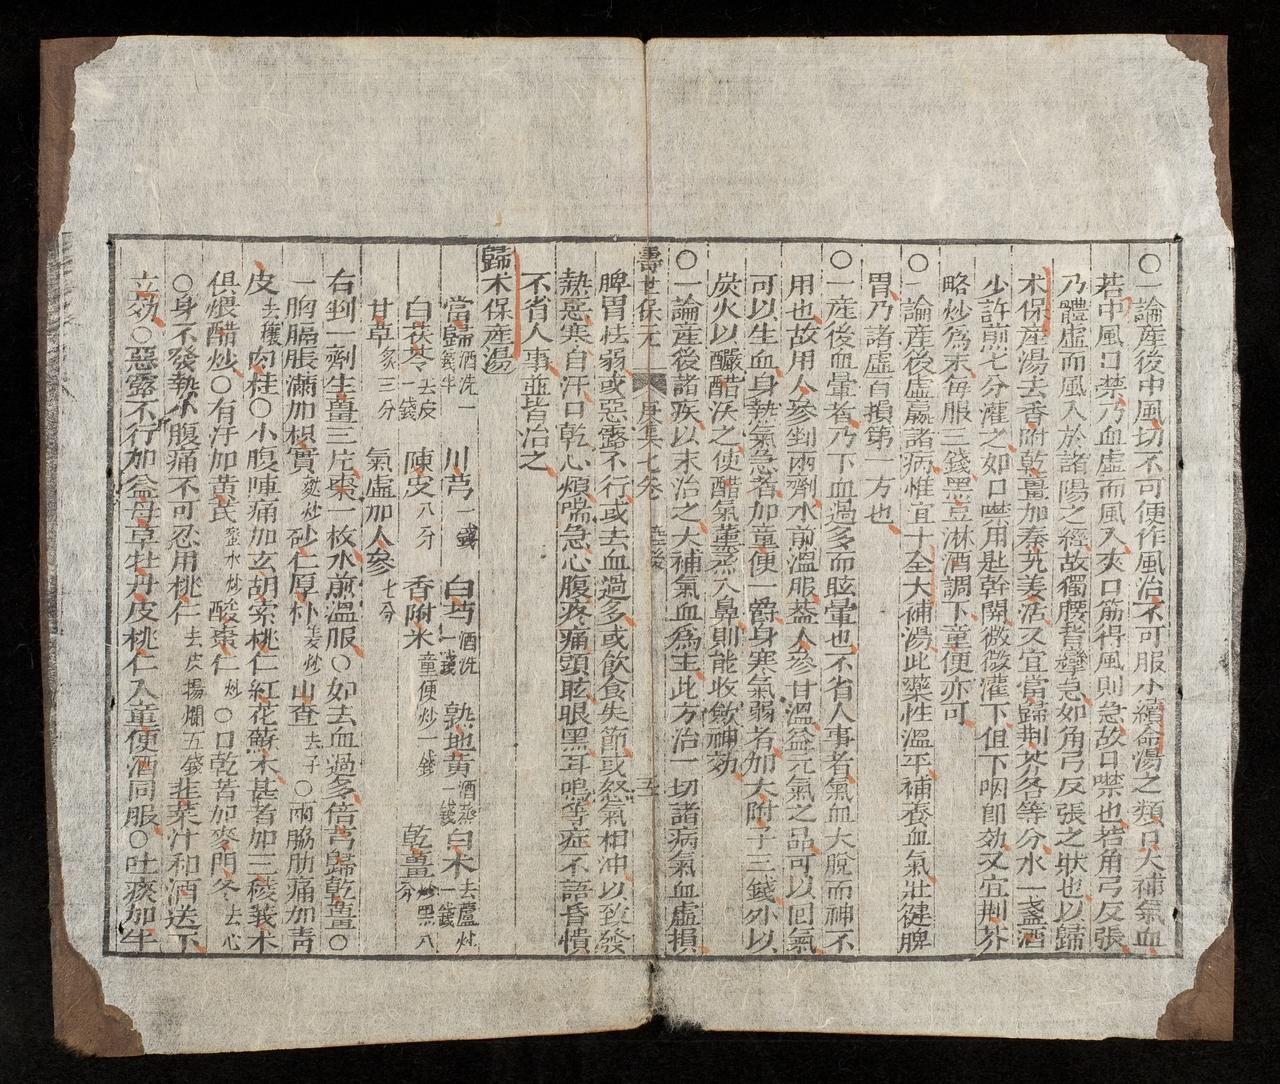 ○一論產後中風切不可便作風治不可服小續命湯之類口大補氣血
若中風口禁乃血虛而風入夾口筋得風則急故口噤也若角弓反張
乃體虛而風入於諸陽之經故獨腰背攣急如角弓反張之狀也以歸
术保產湯去香附乾薑加秦艽羌活又宜當歸荆芥各等分水一盞酒
少許煎七分灌之如口噤用匙幹開微微灌下但下咽即効又宜荆芥
略炒爲末每服三錢黑豆淋酒調下童便亦可
○一論產後虛羸諸病惟宜十全大補湯此藥性溫平補養血氣壯健脾
胃乃諸虛百損第一方也
○一產後血暈者乃下血過多而眩暈也不省人事者氣血大脫而神不
用也故用人參剉兩劑水煎溫服蓋人參甘溫益元氣之品可以回氣
可以生血身熱氣急者加童便一爵身寒氣弱者加大附子三錢外以
炭火以釅醋沃之使醋氣薰蒸入鼻則能收歛神効
○一論產後諸疾以末治之大補氣血爲主此方治一切諸病氣血虛損
壽世保元 庚集七卷 產後 五
脾胃怯弱或惡露不行或去血過多或飲食失節或怒氣相沖以致發
熱惡寒自汗口乾心煩喘急心腹疼痛頭眩眼黑耳鳴等症不語昏憒
不省人事並皆治之
歸术保產湯
當歸酒洗一錢半 川芎一錢 白芍酒洗一錢 熟地黃酒蒸一錢 白术去蘆炒一錢
白茯苓去皮一錢 陳皮八分 香附米童便炒一錢 乾薑炒黑八分
甘草炙三分 氣虛加人參七分
右剉一劑生薑三片棗一枚水煎溫服○如去血過多倍芎歸乾薑○
一胸膈脹滿加枳實麩炒砂仁厚朴姜炒山查去子○兩脇肋痛加青
皮去穰肉桂○小腹陣痛加玄胡索桃仁紅花蘇木甚者加三稜莪术
俱煨醋炒○有汗加黃芪蜜水炒酸棗仁炒○口乾苦加麥門冬去心
○身不發熱小腹痛不可忍用桃仁去皮搗爛五錢韭菜汁和酒送下
立効○惡露不行加益母草牡丹皮桃仁入童便酒同服○吐痰加半